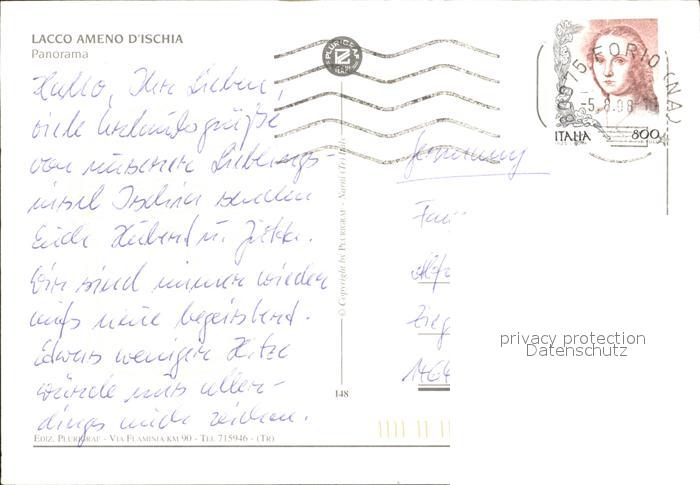 LACCO AMENO D'ISCHIA
Panorama
Hallo, Ihr Lieben,
viele Urlaubsgrüße
von unserer Lieblings-
insel Ischia senden
Euch Hubert u.
Wir sind immer wieder
aufs neue begeistert.
Etwas weniger Hitze
würde uns aller-
dings nicht reichen.
EDIZ. PLURIGRAF - VIA FLAMINIA KM 90 - TEL 715946 - (TR)
PLURIGRAF
© Copyright by PLURIGRAF - Narni (Tr) Italy
148
80075 FORIO (NA)
-5.8.98
ITALIA 800
Germany
Fam
privacy protection
Datenschutz